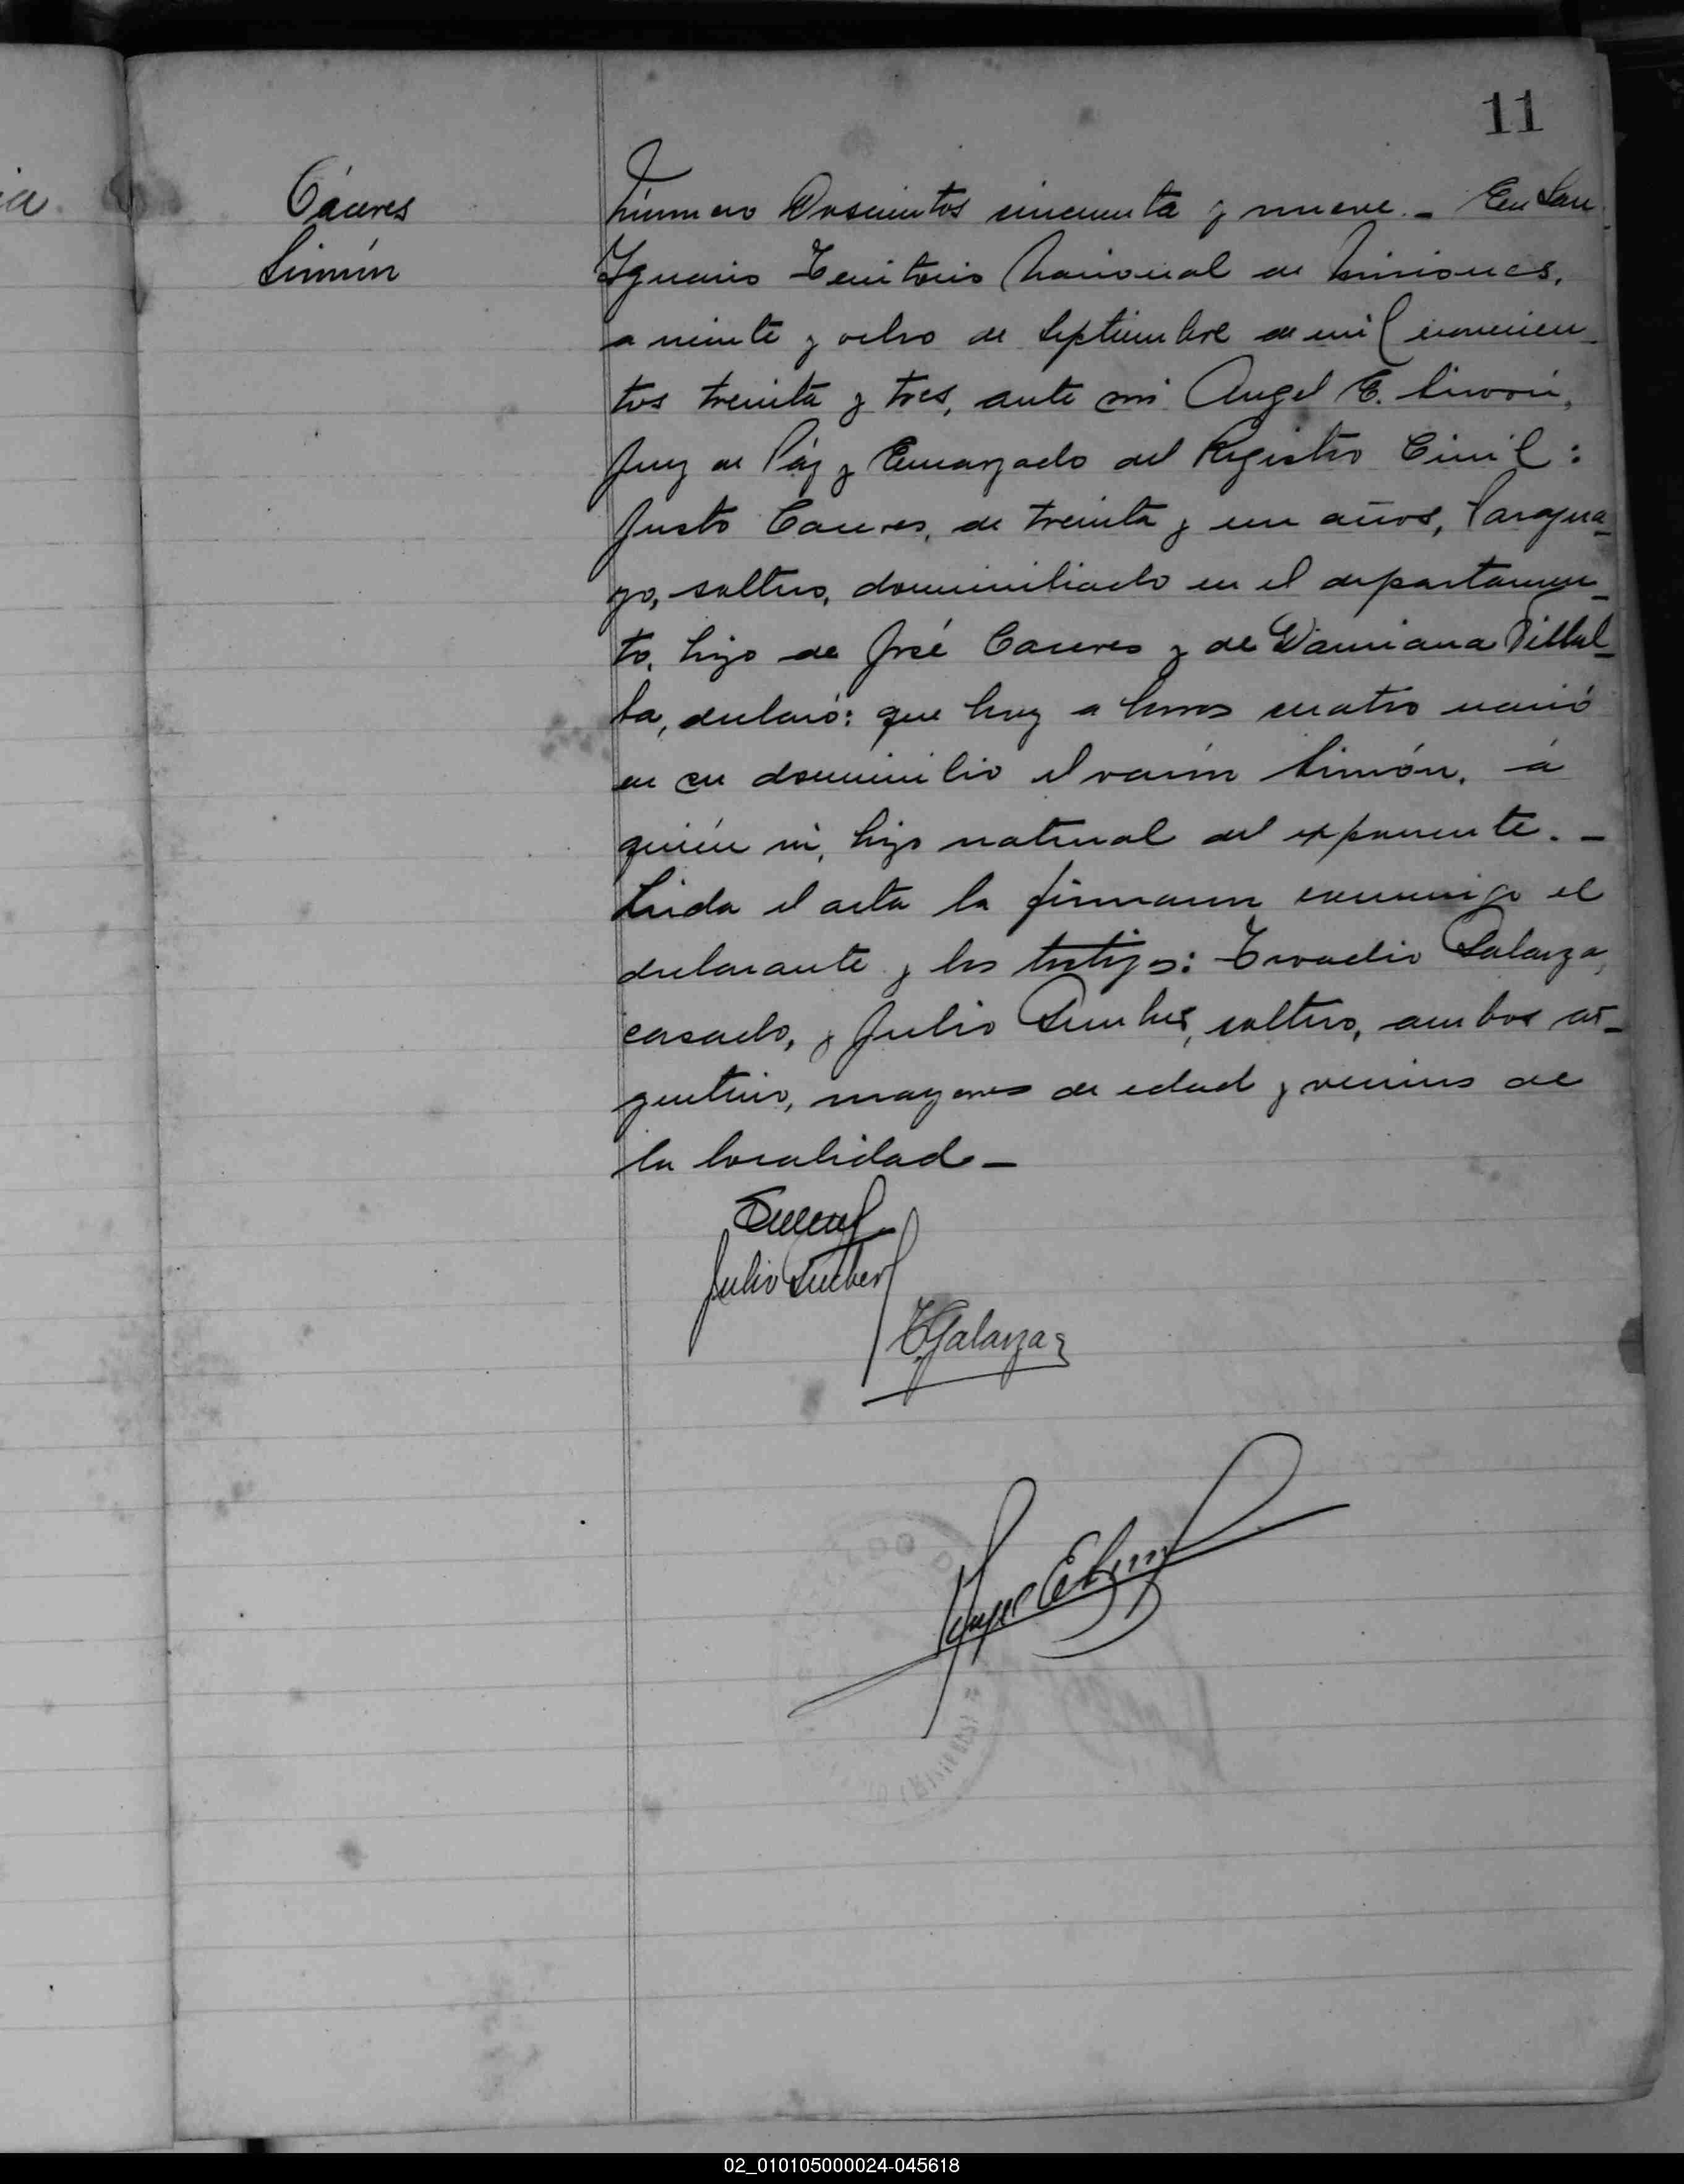 11
Cáceres
Simón
Número Doscientos cincuenta y nueve._ En San
Ignacio Territorio Nacional de Misiones,
a veinte y ocho de Septiembre de mil novecien_
tos treinta y tres, ante mi Angel E.
Juez de Páz y Encargado del Registro Civil:
Justo Caceres, de treinta y un años, Paragua_
yo, soltero, domiciliado en el departamen_
to, hijo de José Caceres y de Damiana Villal_
ba, declaró: que hoy a horas cuatro nació
en su domicilio el varón Simón, á
quién ví, hijo natural del exponente._
Leida el acta la firmaron conmigo el
declarante y los testigos: Galarza,
casado, y Julio soltero, ambos ar_
gentino, mayores de edad y vecinos de
la localidad_
Julio
Galarza
02_010105000024-045618